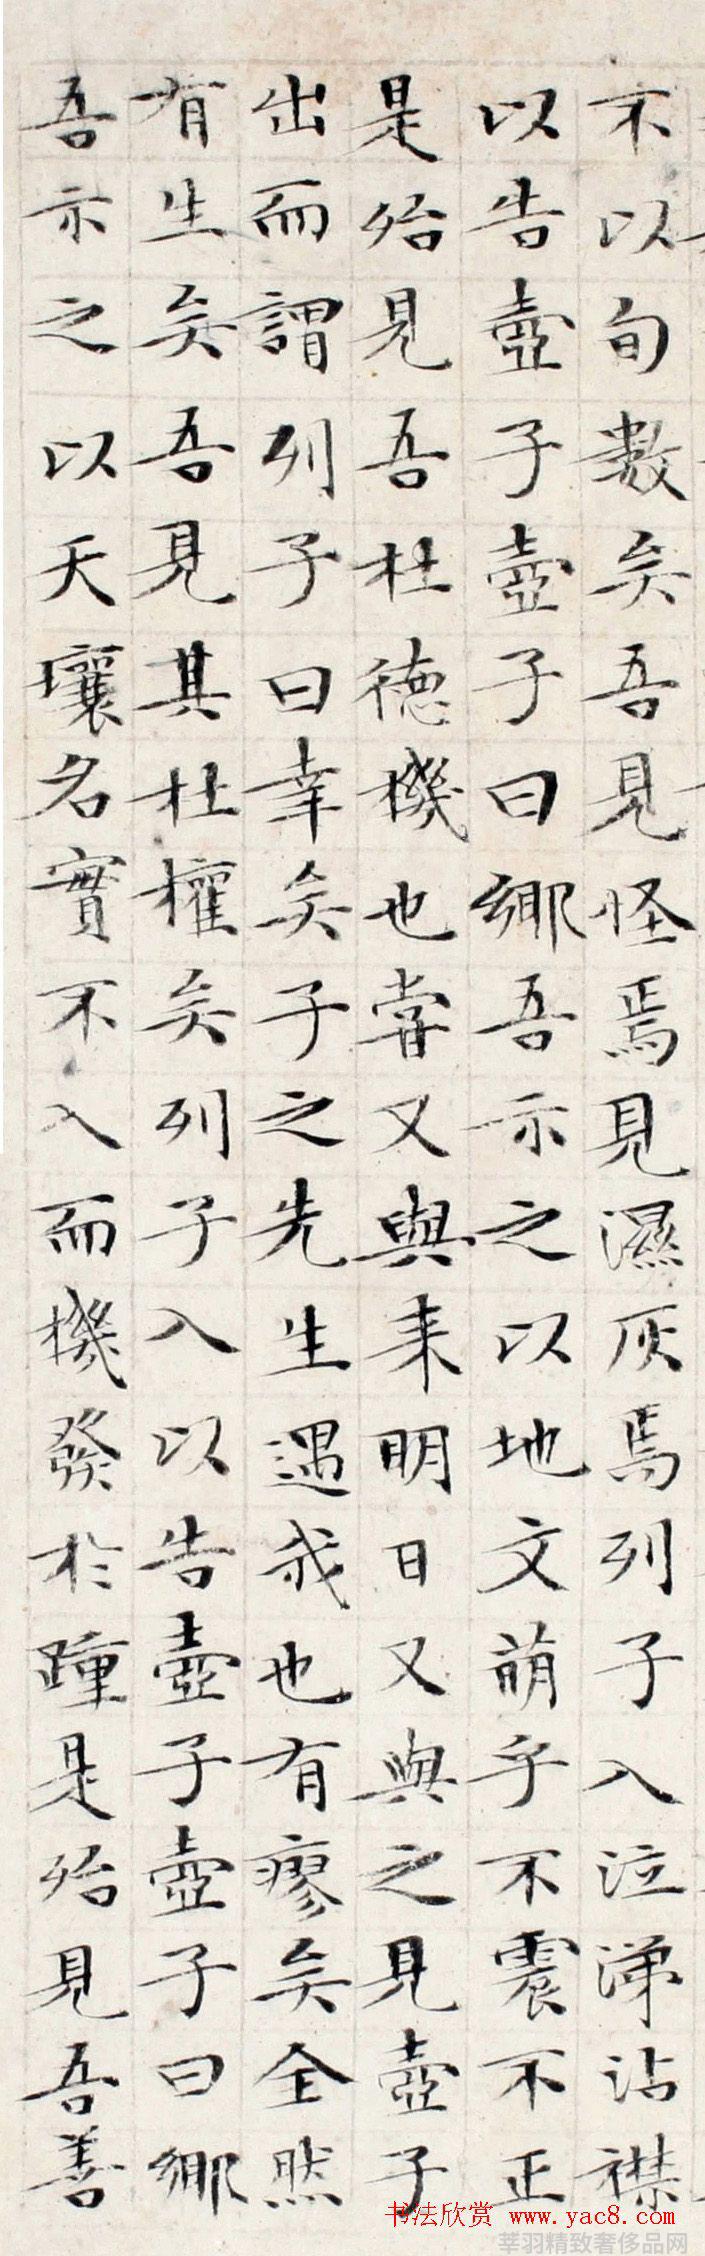 不以旬數矣吾見怪焉見濕灰焉列子入泣涕沾襟
以告壺子壺子曰鄉吾示之以地文萌乎不震不正
是殆見吾杜德機也嘗又與來明日又與之見壺子
出而謂列子曰幸矣子之先生遇我也有瘳矣全然
有生矣吾見其杜權矣列子入以告壺子壺子曰鄉
吾示之以天壤名實不入而機發於踵是殆見吾善
书法欣赏 www.yac8.com
莘羽精致奢侈品网